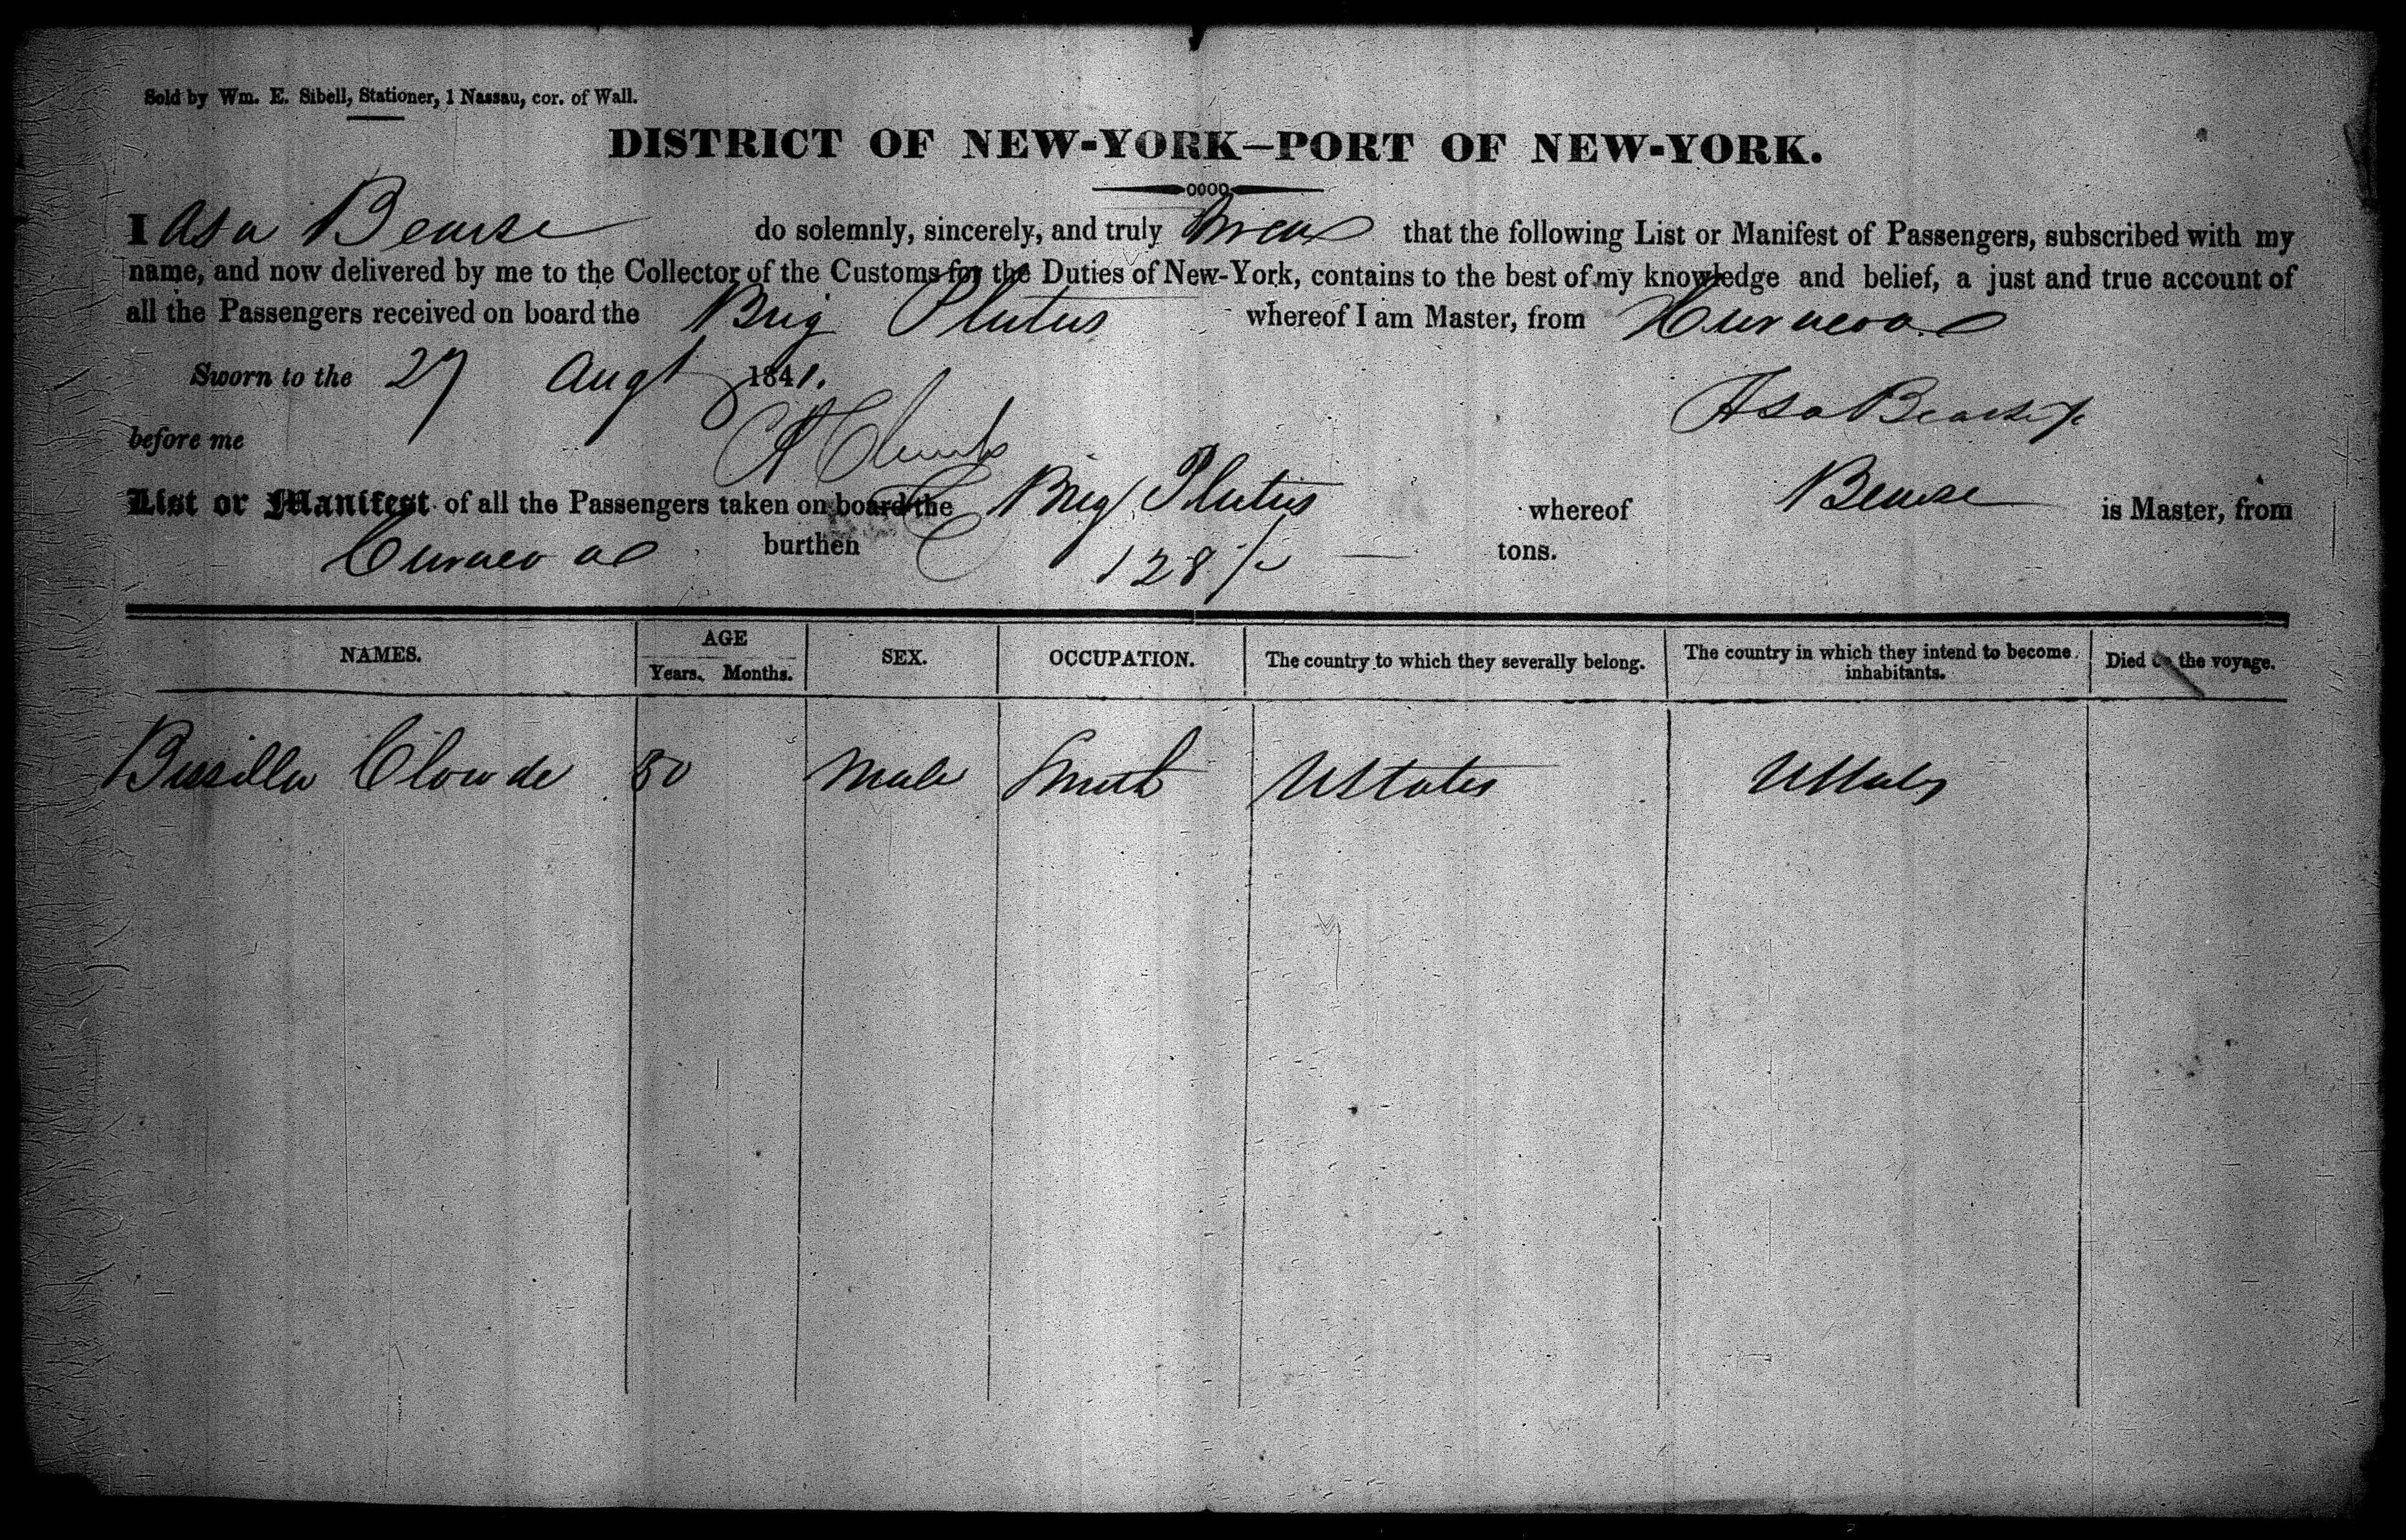 Sold by Wm. E. Sibell, Stationer, 1 Nassau, cor. of Wall.
DISTRICT OF NEW-YORK—PORT OF NEW-YORK.
I Asa Bearse do solemnly, sincerely, and truly Swear that the following List or Manifest of Passengers, subscribed with my
name, and now delivered by me to the Collector of the Customs for the Duties of New-York, contains to the best of my knowledge and belief, a just and true account of
all the Passengers received on board the Brig Plutus whereof I am Master, from Curacoa
Sworn to the 27 Augt 1841.
Asa Bearse
before me
List or Manifest of all the Passengers taken on board the Brig Plutus whereof Bearse is Master, from
Curacoa burthen 128 tons.
NAMES. AGE SEX. OCCUPATION. The country to which they severally belong. The country in which they intend to become inhabitants. Died on the voyage.
Years. Months.
Clowde 30 Male Smith UStates UStates